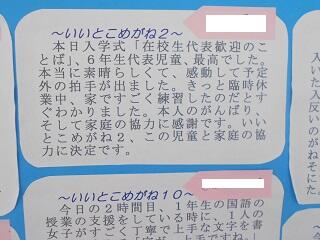 ～いいとこめがね２～
本日入学式「在校生代表歓迎のこ
とば」、６年生代表児童、最高でした。
本当に素晴らしくて、感動して予定
外の拍手が出ました。きっと臨時休
業中、家ですごく練習したのだとす
ぐわかりました。本人のがんばり、
そして家庭の協力に感謝です。いい
とこめがね２、この児童と家庭の協
力に決定です。
～いいとこめがね１０～
今日の２時間目、１年生の国語の
授業の支援をしている時に、１人の
女子がすごく丁寧で上手な文字を書